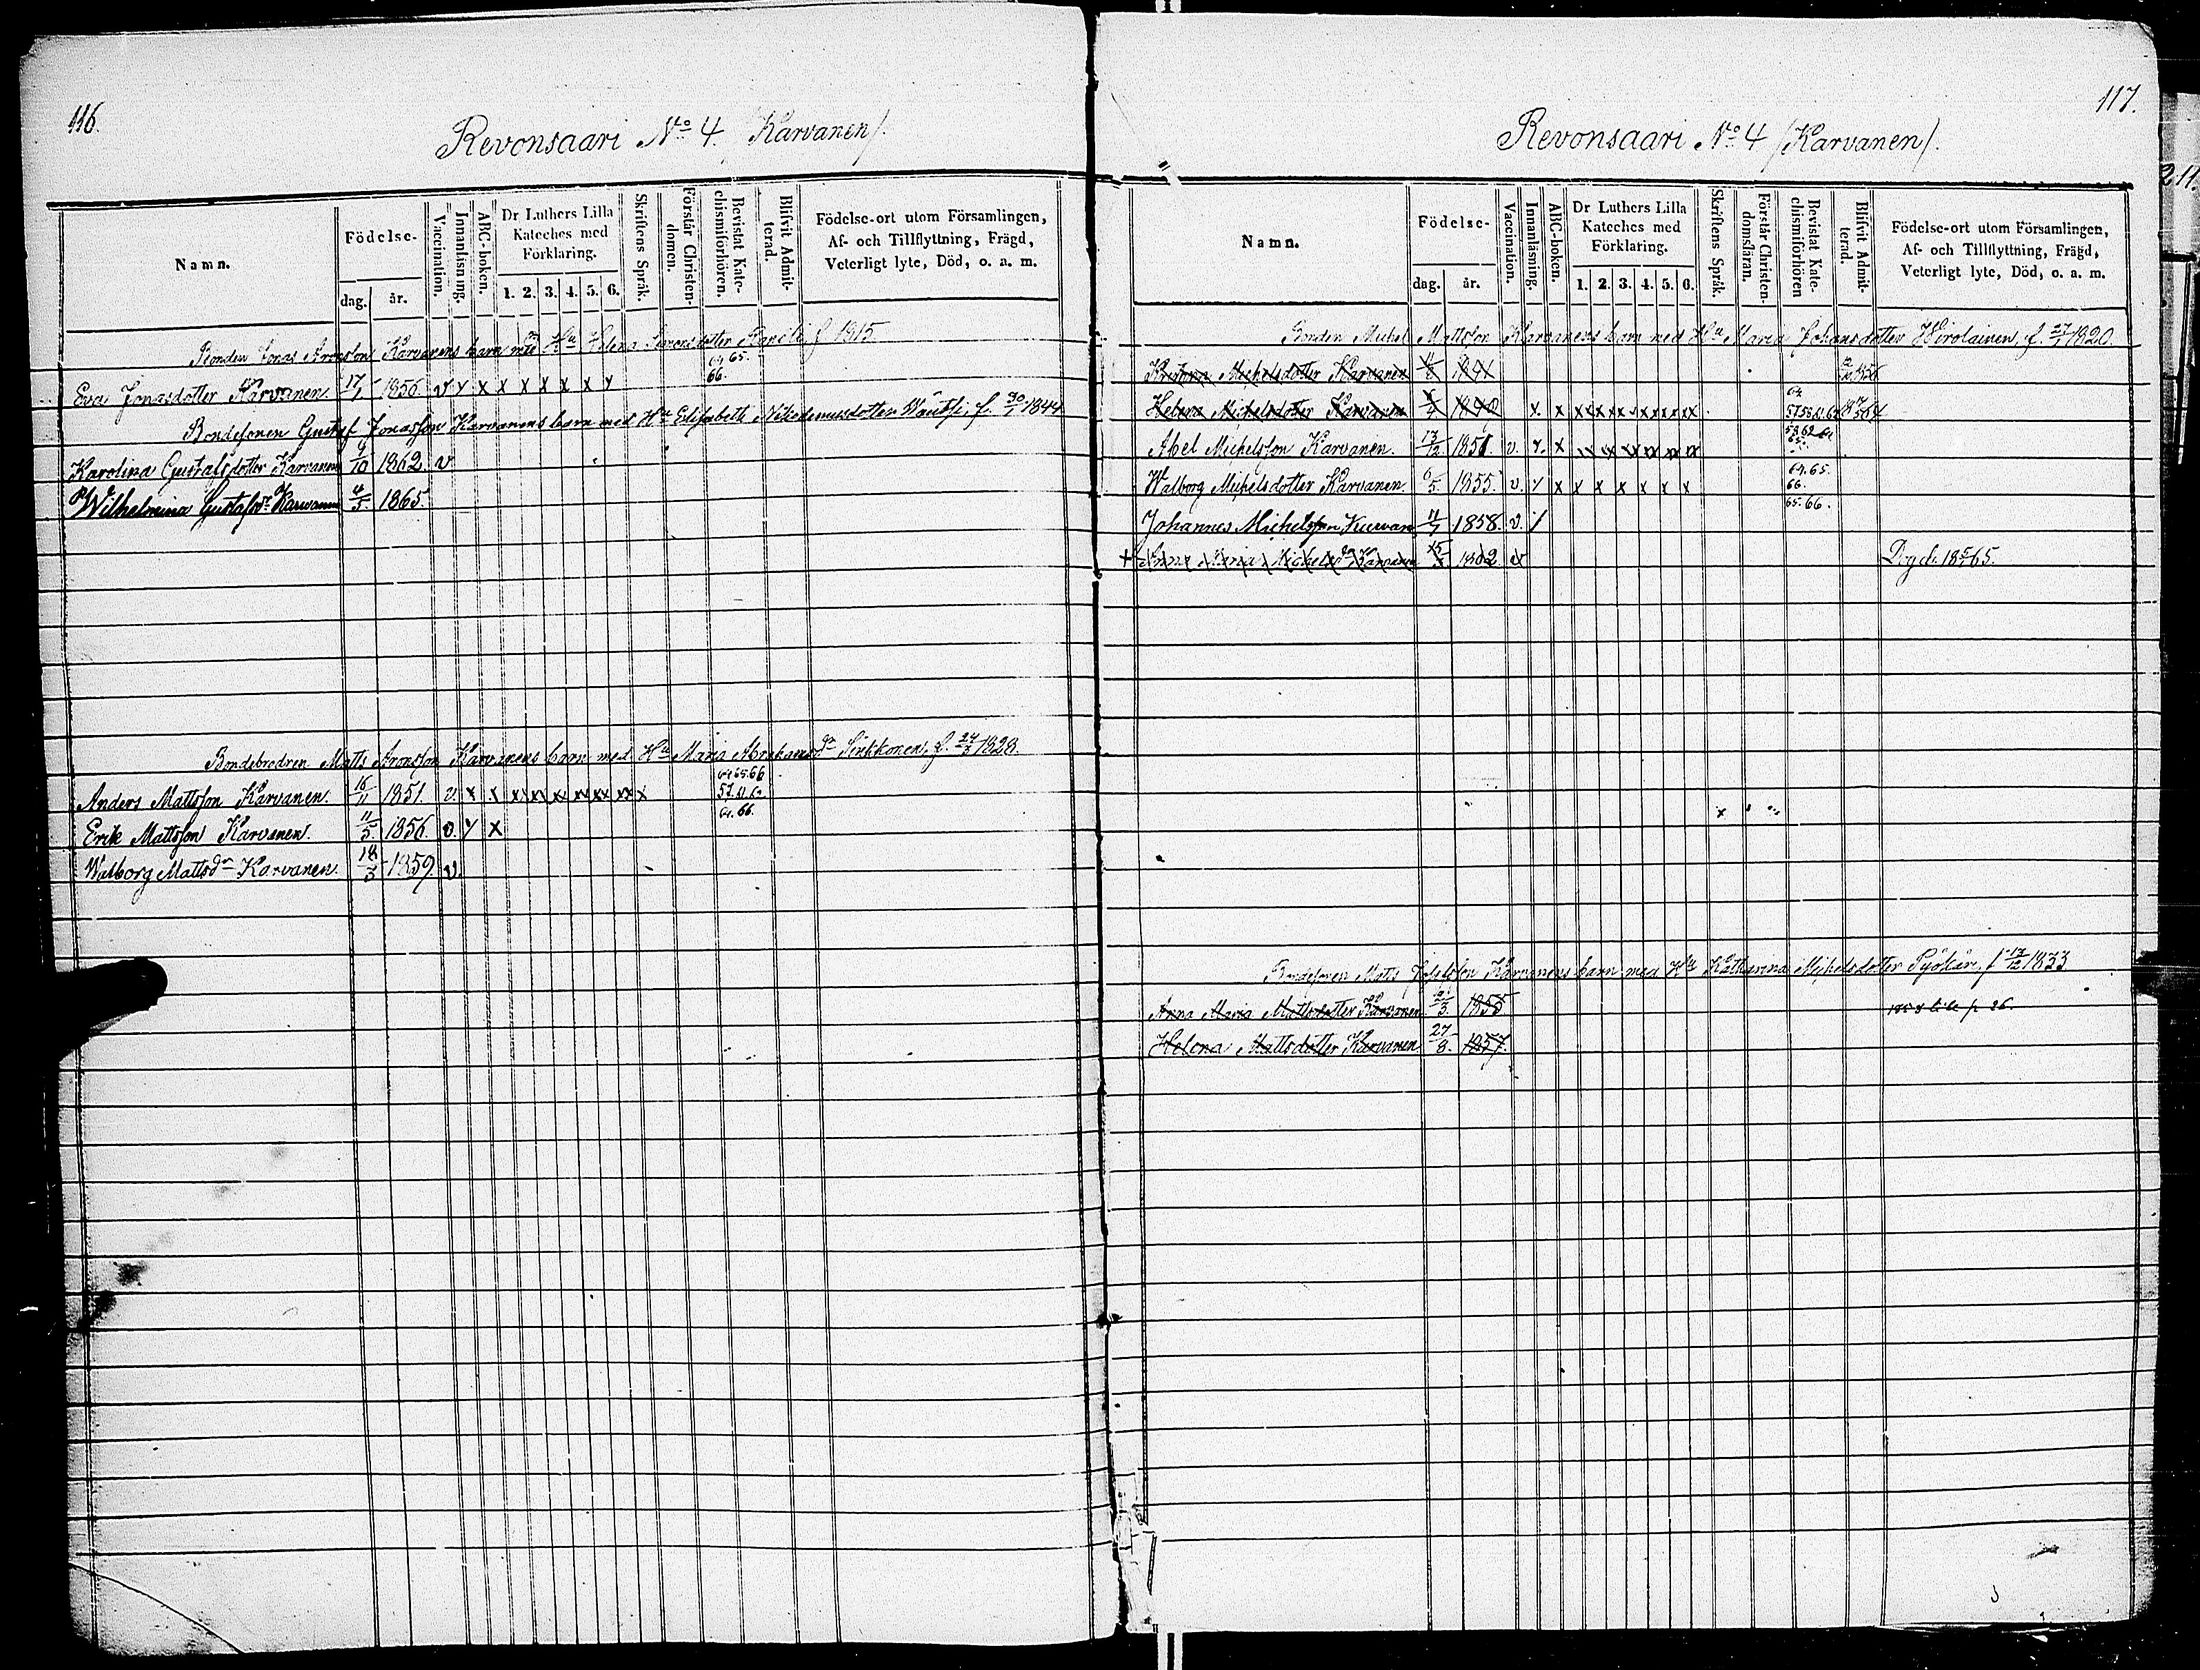 116.
Revonsaari No 4. Karvanen/.
Namn.
Födelse-
dag.
år.
Vaccination.
Innanläsning.
ABC-boken.
Dr Luthers Lilla
Kateches med
Förklaring.
1. 2. 3. 4. 5. 6.
Skriftens Språk.
Förstår Christen-
domen.
Bevistat Kate-
chismiförhören.
Blifvit Admit-
terad.
Födelse-ort utom Församlingen,
Af- och Tillflyttning, Frägd,
Veterligt lyte, Död, o. a. m.
Bonden Jonas Aronsson Karvanens barn med Hu Helena f 1815
64 65.
Eva Jonasdotter Karvanen. 17/1 1856. v y x x x x x x y 66.
Bondesonen Gustaf Jonasson Karvanens barn med Hu Elisabeth Nikodemusdotter f. 30/1 1844
Karolina Gustafsdotter Karvanen 9/10 1862. v
Wilhelmina Gustafsdr Karvanen 4/5 1865.
Bondebrodren Matts Aronsson Karvanens barn med Hu Maria Abrahamsdr Sinkkonen, f. 24/3 1828.
64 65 66
Anders Mattsson Karvanen. 16/11 1851. v. x x xx xx xx xx xx xx x 57. 61. 62
64. 66.
Erik Mattsson Karvanen. 11/5 1856. v. y x
Walborg Mattsdr Karvanen. 18/3 1859. v.
117.
Revonsaari No 4 /Karvanen/.
Namn.
Födelse-
dag.
år.
Vaccination.
Innanläsning.
ABC-boken.
Dr Luthers Lilla
Kateches med
Förklaring.
1. 2. 3. 4. 5. 6.
Skriftens Språk.
Förstår Christen-
domsläran.
Bevistat Kate-
chismiförhören
Blifvit Admit-
terad.
Födelse-ort utom Församlingen,
Af- och Tillflyttning, Frägd,
Veterligt lyte, Död, o. a. m.
Bonden Michel Mattsson Karvanens barn med Hu Maria Johansdotter Hirolainen, f. 27/1 1820.
Michelsdotter Karvanen 1841
Helena Michelsdotter Karvanen x. x xx xx xx xx xx xx
Abel Michelsson Karvanen. 13/12 1851 v. y. x xx xx xx xx xx xx 65.
64. 65.
Walborg Michelsdotter Karvanen. 6/5 1855. v. y x x x x x x x 66.
65. 66.
Johannes Michelsson Kurvan 11/7 1858. v. /
+ Anna Maria Michelsdr Karvanen 1862 v Dog d. 18 5/1 65.
Bondesonen Matts Josefsson Karvanens barn med Hu Katharina Michelsdotter Pyökär, f 17/12 1833
Anna Maria Mattsdotter Karvanen 1855 p 26.
Helena Mattsdotter Karvanen 27/8. 1857.
211.